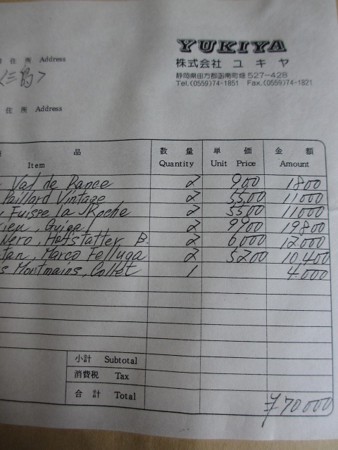 YUKIYA
住所 Address
株式会社 ユキヤ
<三島>
静岡県田方郡函南町畑 527-428
Tel.(0559)74-1851 Fax.(0559)74-1821
住所 Address
品 数量 単価 金額
Item Quantity Unit Price Amount
Val de Rance 2 900 1800
Paillard Vintage 2 5500 11000
Fuisse la Roche 2 5500 11000
Guigal 2 9900 19800
Nero, Hofstatter B. 2 6000 12000
Marco Felluga 2 5200 10400
Montmains, Collet 1 4000
小計 Subtotal
消費税 Tax
合計 Total
¥70000